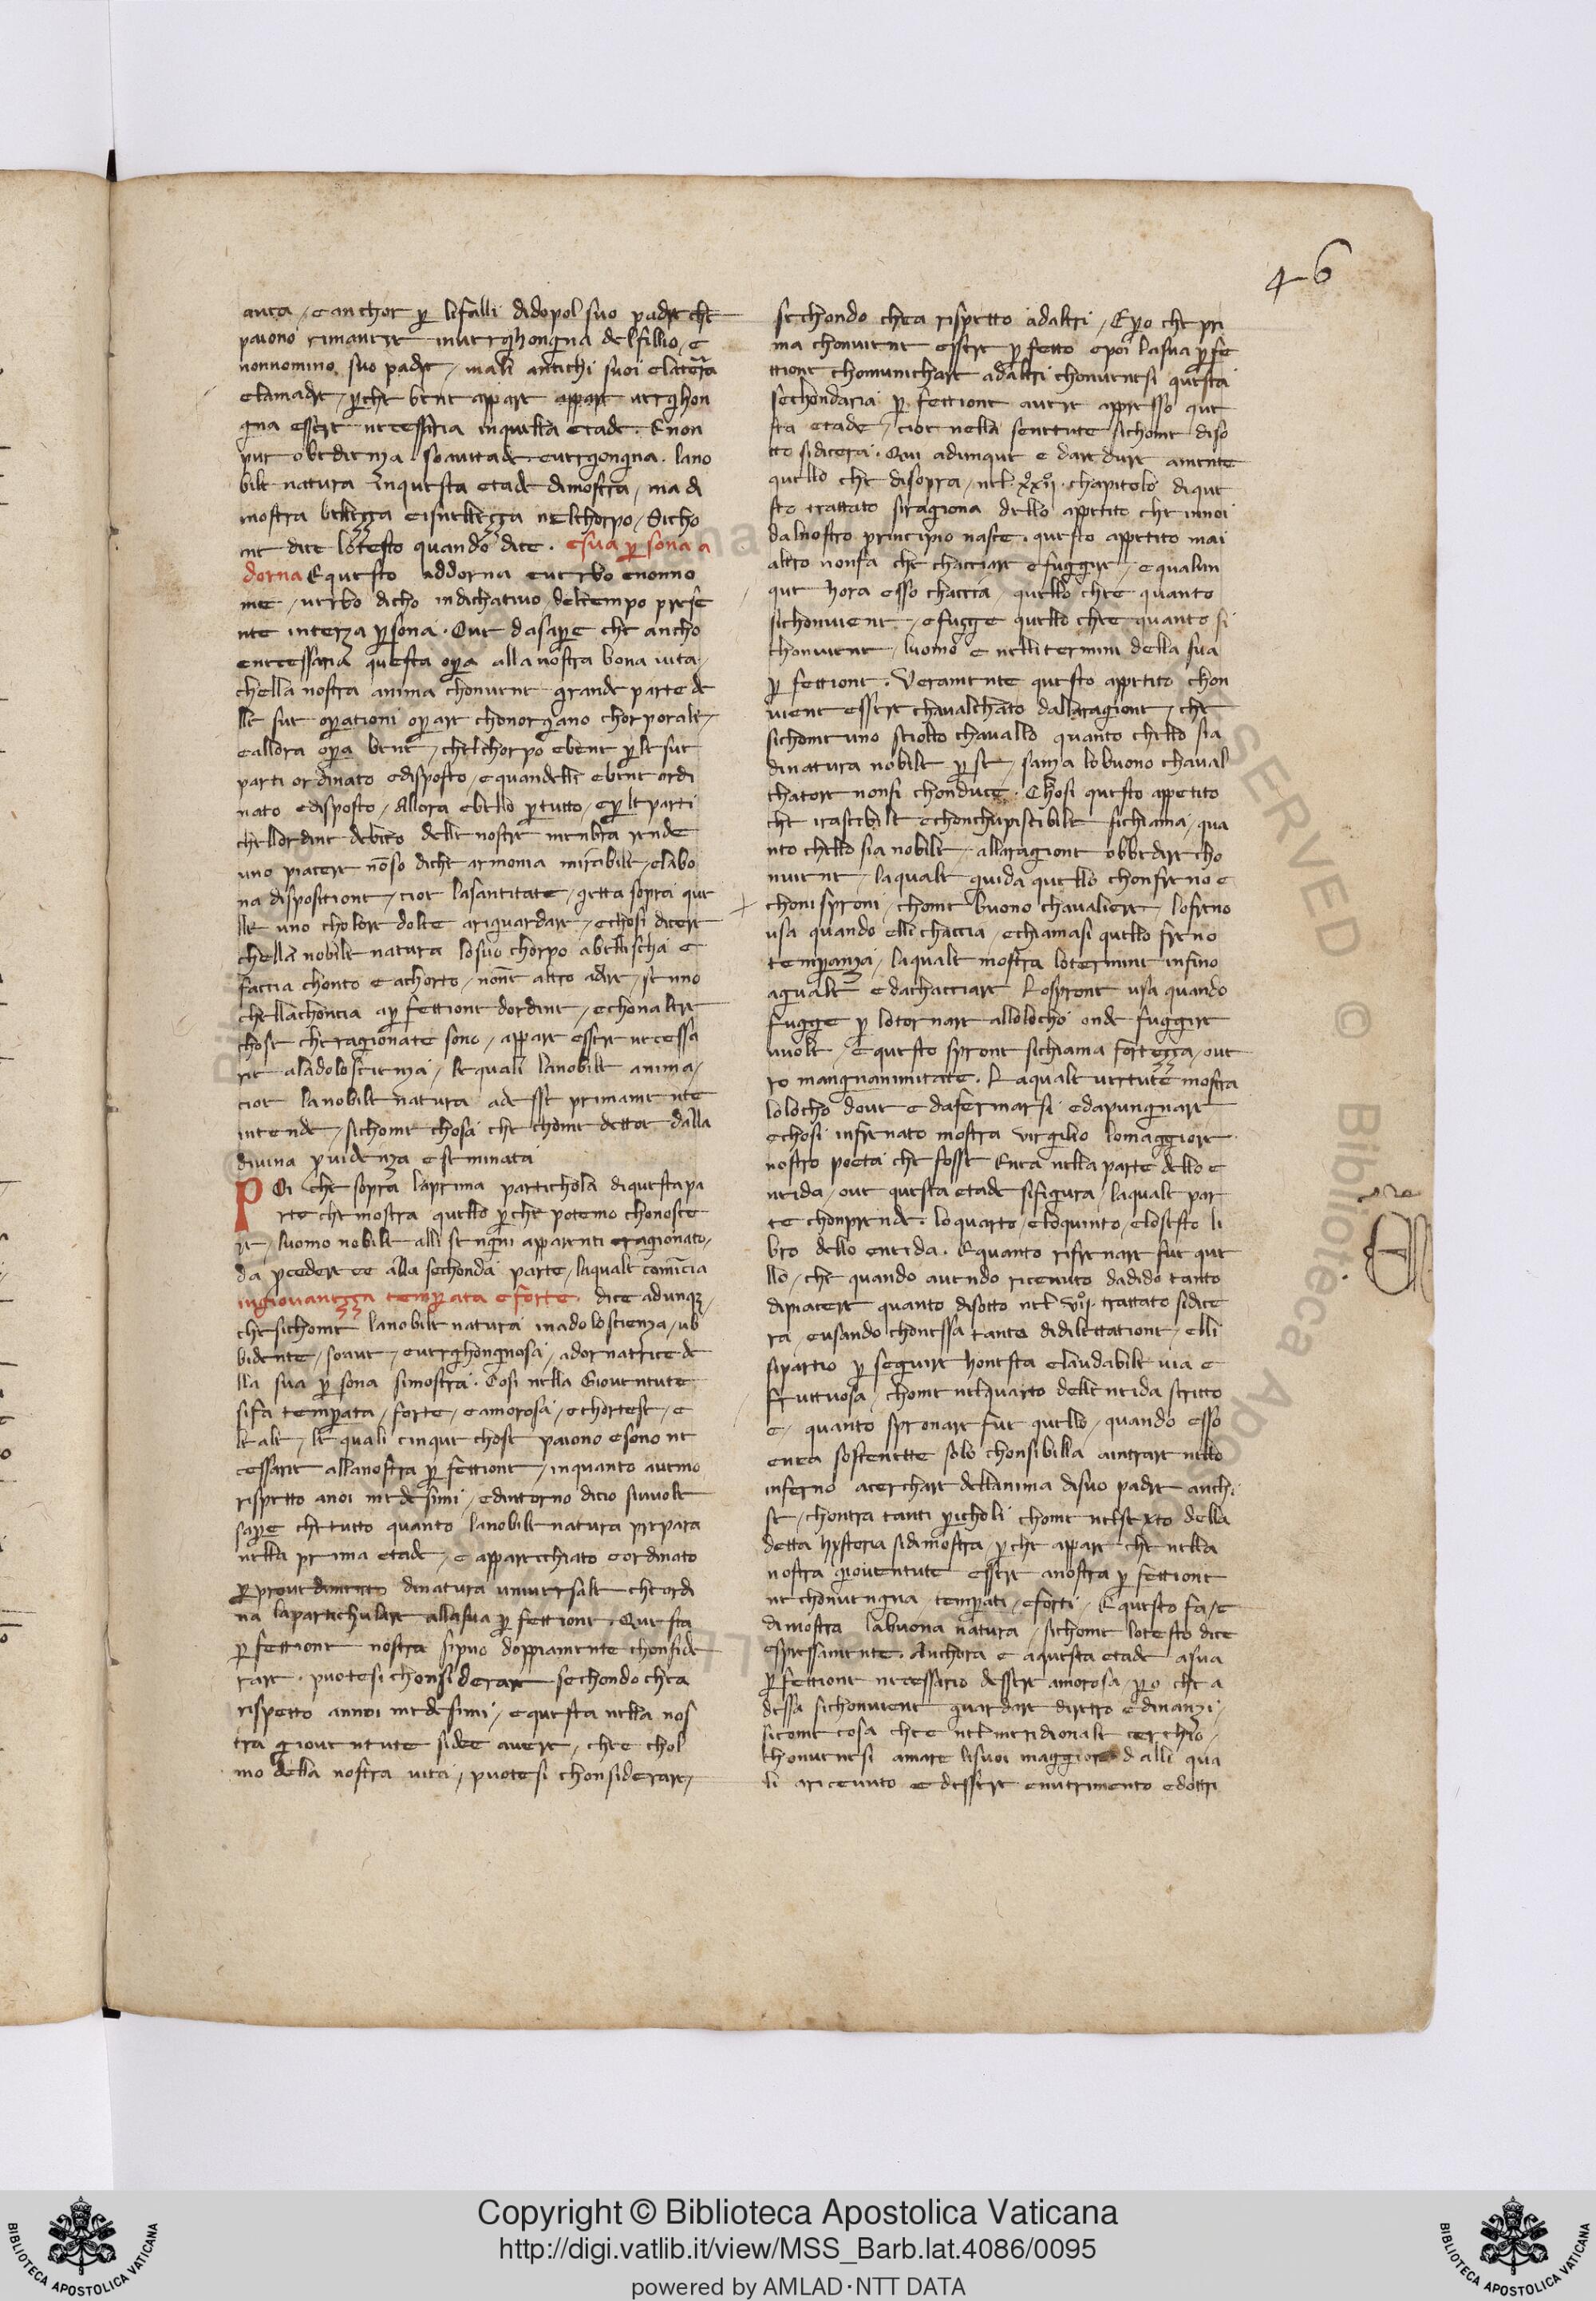 46
auea / e anchor ꝑ li falli didopol suo padre che
paiono rimanere in verghongna del fillio / e
non nomino suo padre / ma li antichi suoi e la terra
e la madre / ꝑche bene appare appare verghon
gna essere necessaria in quella etade. E non
pur obedienza soauitade e vergongna. la no
bile natura in questa etade dimostra / ma di
mostra bellezza e isnellezza nel chorpo / Sicho
me dice lo testo quando dice. e sua ꝑsona a
dorna E questo addorna e verbo e non no
me / verbo dicho indichativo del tempo prese
nte in terza ꝑsona. Oue da saꝑe che ancho
e necessaria questa oꝑa alla nostra bona vita /
che lla nostra anima chonuene grande parte de
lle sue oꝑationi oꝑare chon organo chorporale /
e allora oꝑa bene / chel chorpo e bene ꝑ le sue
parti ordinato e disposto / e quand elli e bene ordi
nato e disposto / Allora e bello ꝑ tutto / e ꝑ le parti
che ll ordine debito delle nostre menbra rende
uno piacere nō so di che armonia mirabile / e la bo
na dispositione / cioe la santitate / getta sopra que
lle uno cholore dolce a riguardare / e chosi dicere
che lla nobile natura lo suo chorpo abellischa e
faccia chonto e achorto / non e altro a dire / se nno
che ll achoncia a ꝑfettione d ordine / e chon altre
chose che ragionate sono / appare essere necessa
rie a la doloscienza / le quali la nobile anima /
cioe la nobile natura ad esse primamente
intende / sichome chosa che chome dett e dalla
divina prouidenza e seminata
Poi che sopra la prima partichola di questa pa
rte che mostra quello ꝑche potemo chonosce
re / l uomo nobile alli sengni apparenti e ragionato /
da procedere e e alla sechonda parte / la quale comincia
in giouanezza temꝑata e forte. dice adunqꝫ
che sichome la nobile natura in adoloscienza / ub
bidente / soaue / e verghongnosa / adornatrice de
lla sua ꝑsona si mostra. Cosi nella Giouentute
si fa temꝑata / forte / e amorosa / e chortese / e
leale / le quali cinque chose paiono e sono ne
cessarie alla nostra ꝑfettione / in quanto auemo
rispetto a noi medesimi / ed intorno di cio si vuole
saꝑe che tutto quanto la nobile natura prepara
nella prima etade / e apparecchiato e ordinato
ꝑ prouedimento di natura universale che ordi
na la partichulare alla sua ꝑfettione. Questa
ꝑfettione nostra si puo doppiamente chonside
rare. puotesi chonsiderare sechondo che a
rispetto a nnoi medesimi / e questa nella nos
tra giouentute si dee auere / che e chol
mo della nostra vita / puotesi chonsiderare /
sechondo che a rispetto ad altri / E ꝑo che pri
ma chonuiene essere ꝑfetto e poi la sua ꝑfe
ttione chomunichare ad altri chonuenesi questa
sechondaria ꝑfettione auere appresso que
sta etade / cioe nella senettute sichome di so
tto si dicera. Qui adunque e da redure a mente
quello che di sopra / nel. xxii. chapitolo di que
sto trattato si ragiona dello appetito che in noi
dal nostro principio nasce. questo appetito mai
altro non fa che chacciare e fuggire / e qualun
que hora esso chaccia / quello che e quanto
si chonuiene / e fugge quello che e quanto si
chonuiene / l uomo e nelli termini della sua
ꝑfettione. Veramente questo appetito chon
uiene essere chaualchato dalla ragione / che
sichome uno sciolto chauallo quanto ch ello sia
di natura nobile ꝑ se / sanza lo buono chaual
chatore non si chonduce. Chosi questo appetito
che irascibile e chonchupiscibile si chiama / qua
nto ch ello sia nobile / alla ragione obbedire cho
nuiene / la quale guida quello chon freno e
chon isproni / chome buono chavaliere / lo freno
usa quando elli chaccia / e chiamasi quello freno
temꝑanza / la quale mostra lo termine infino
a quale e da chacciare Lo sprone usa quando
fugge ꝑ lo tornare allo locho onde fuggire
vuole / E questo sprone si chiama fortezza / oue
ro mangnanimitate. La quale vertute mostra
lo locho doue e da fermarsi e da pungnare
e chosi infrenato mostra Virgilio lo maggiore
nostro poeta che fosse Enea nella parte dello e
neida / oue questa etade si figura / la quale par
te chonprende. lo quarto / e lo quinto / e lo sesto li
bro dello eneida. E quanto rifrenare fue que
llo / che quando auendo riceuuto da dido tanto
di piacere quanto di sotto nel. vii. trattato si dice
ra / e usando chon essa tanto di dilettatione / elli
si partio ꝑ seguire honesta e laudabile via e
fruttuosa / chome nel quarto dell eneida scritto
e / quanto spronare fue quello / quando esso
enea sostenette solo chon sibilla a intrare nello
inferno a cerchare dell anima di suo padre anchi
se / chontra tanti ꝑicholi chome nel sexto della
detta hystoria si dimostra / ꝑche appare che nella
nostra giouentute essere a nostra ꝑfettione
ne chonuengna / temꝑati / e forti / E questo fa / e
dimostra la buona natura / sichome lo testo dice
espressamente. Anchora e a questa etade a sua
ꝑfettione necessario d essere amorosa / ꝑo che a
dessa si chonuiene guardare diretro e dinanzi /
si come cosa che e nel meridionale cerchio /
chonuenesi amare li suoi maggiori dalli qua
li a riceuuto ed essere e nutrimento e dottri
Copyright © Biblioteca Apostolica Vaticana
http://digi.vatlib.it/view/MSS_Barb.lat.4086/0095
powered by AMLAD·NTT DATA
BIBLIOTECA APOSTOLICA VATICANA
BIBLIOTECA APOSTOLICA VATICANA